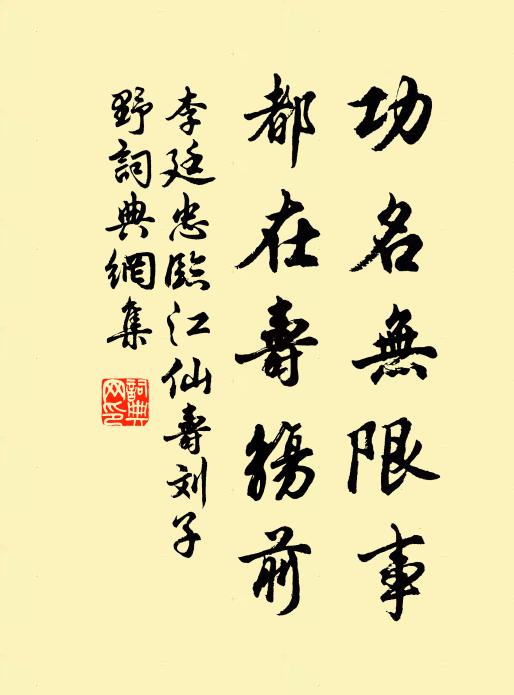 功名無限事
都在壽觴前
李廷忠臨江仙壽刘子
野詞典網集
詞典网印